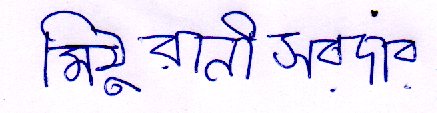 মিঠু রানী সরদার